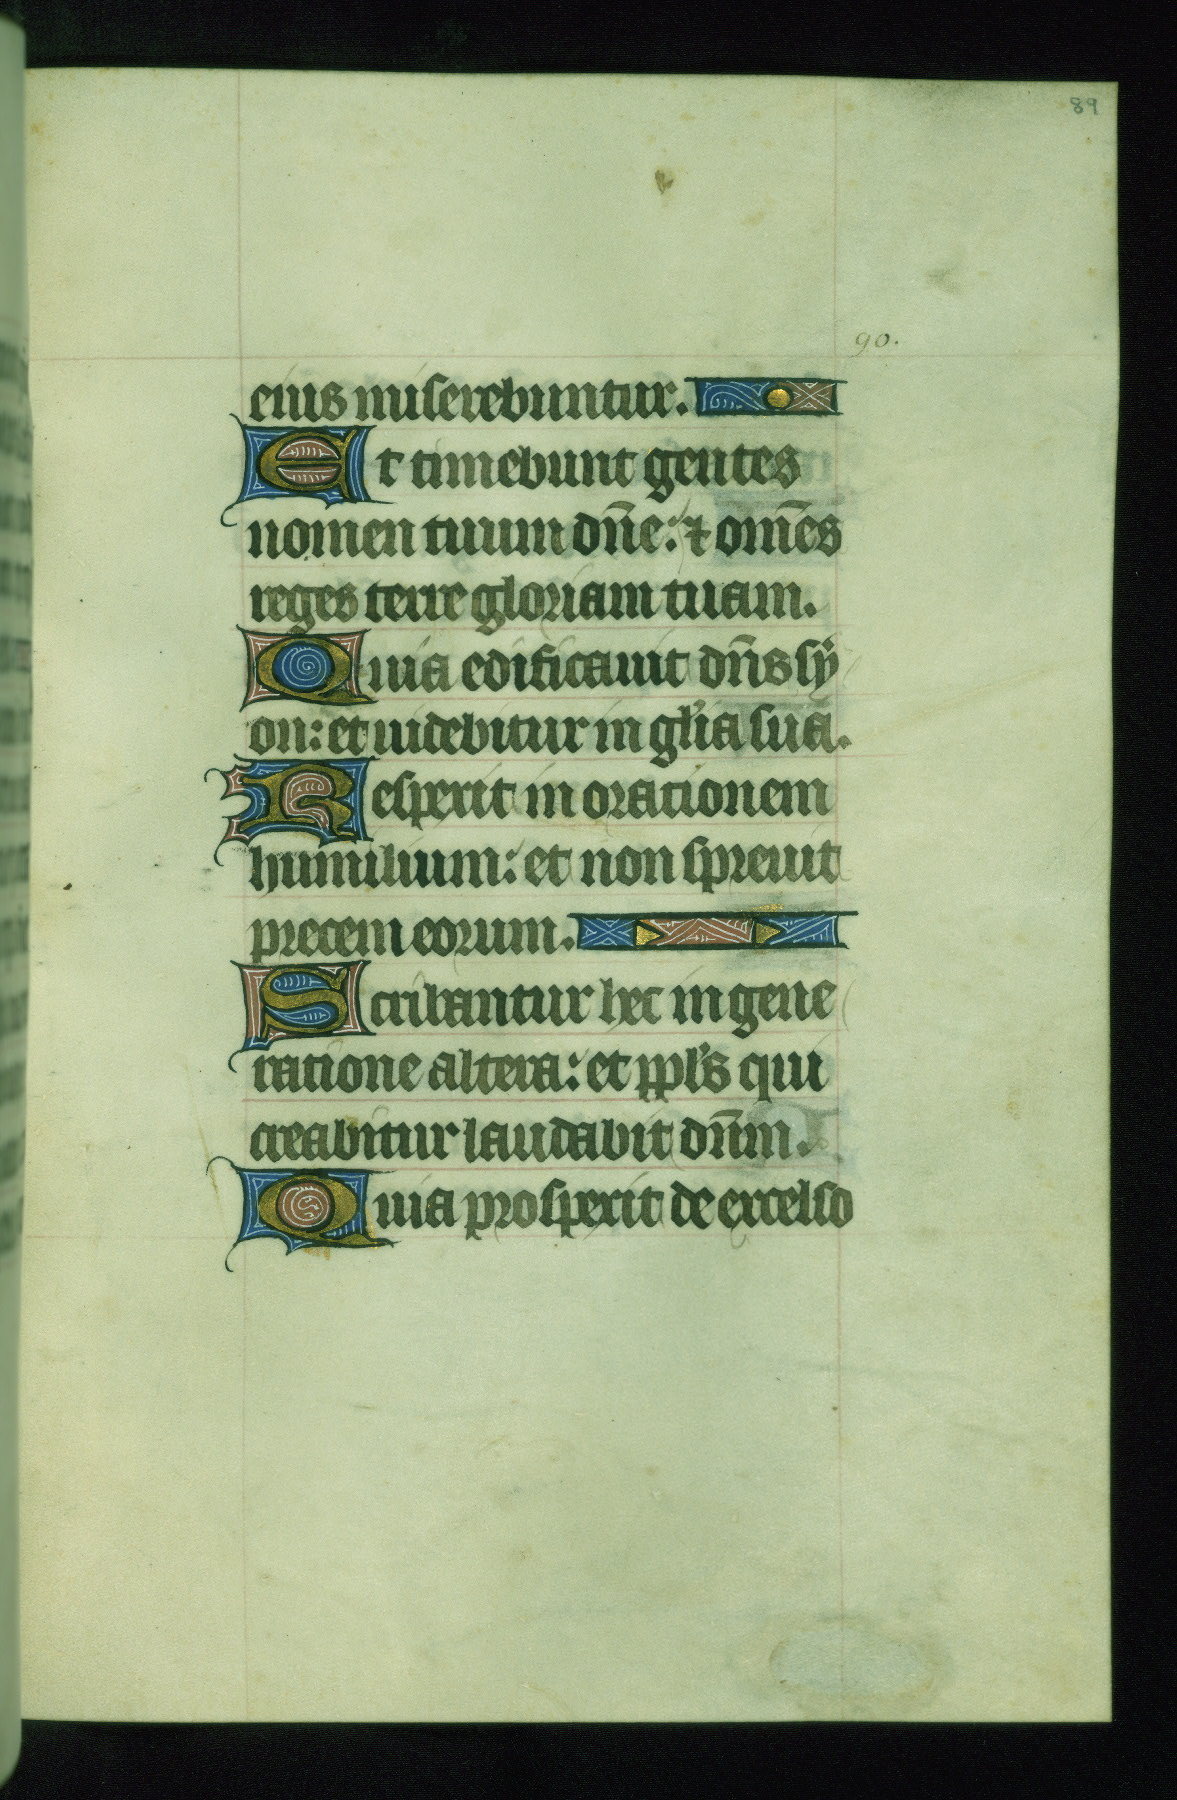 89
90.
eius miserebuntur.
Et timebunt gentes
nomen tuum dn̄e: ⁊ om̄es
reges terre gloriam tuam.
Quia edificauit dn̄s sy
on: et uidebitur in gl'ia sua.
Respexit in orationem
humilium: et non spreuit
precem eorum.
Scribantur hec in gene
ratione altera: et ppl's qui
creabitur laudabit dn̄m.
Quia prospexit de excelso